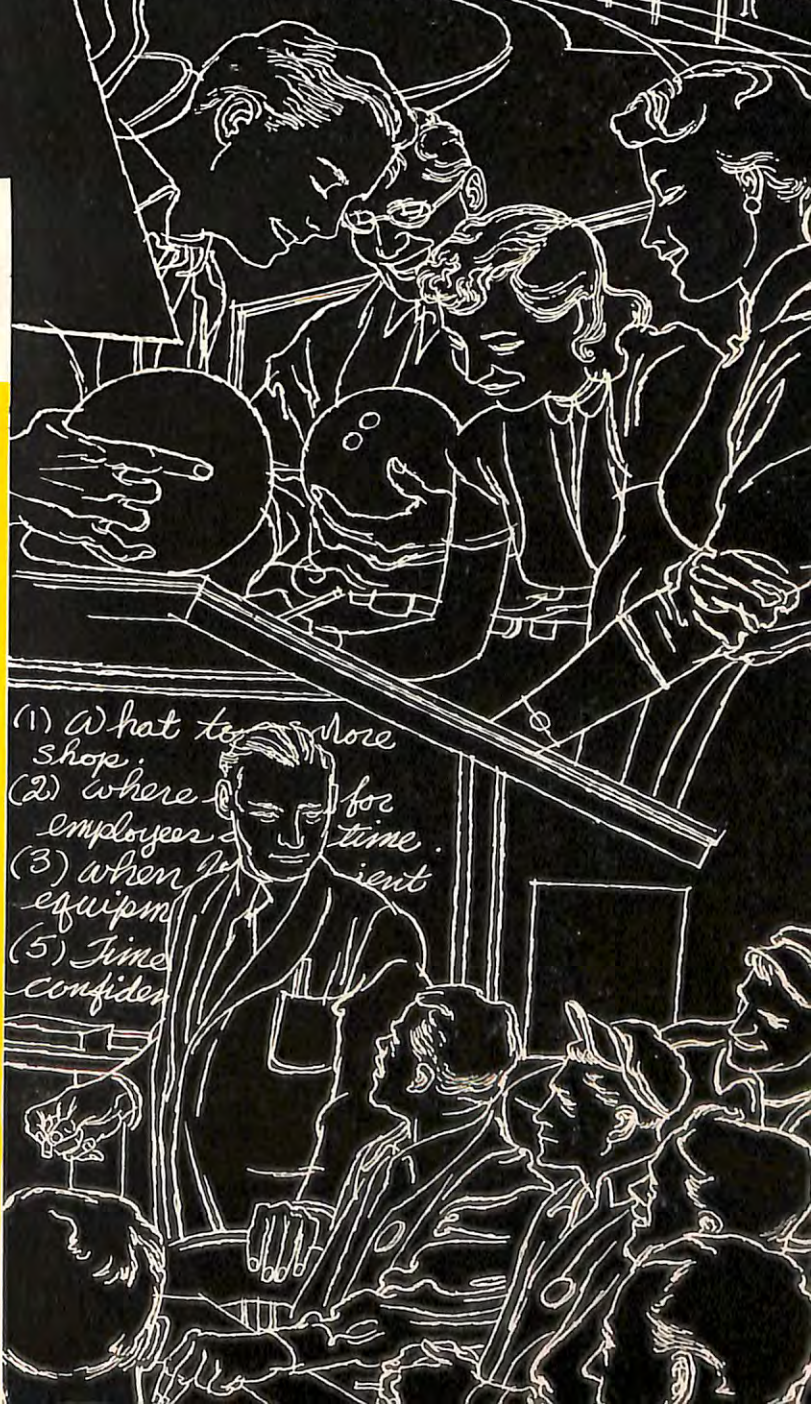 (1) What to
shop.
(2) where for
employees time.
(3) when ient
equipm
(5) Time
confiden